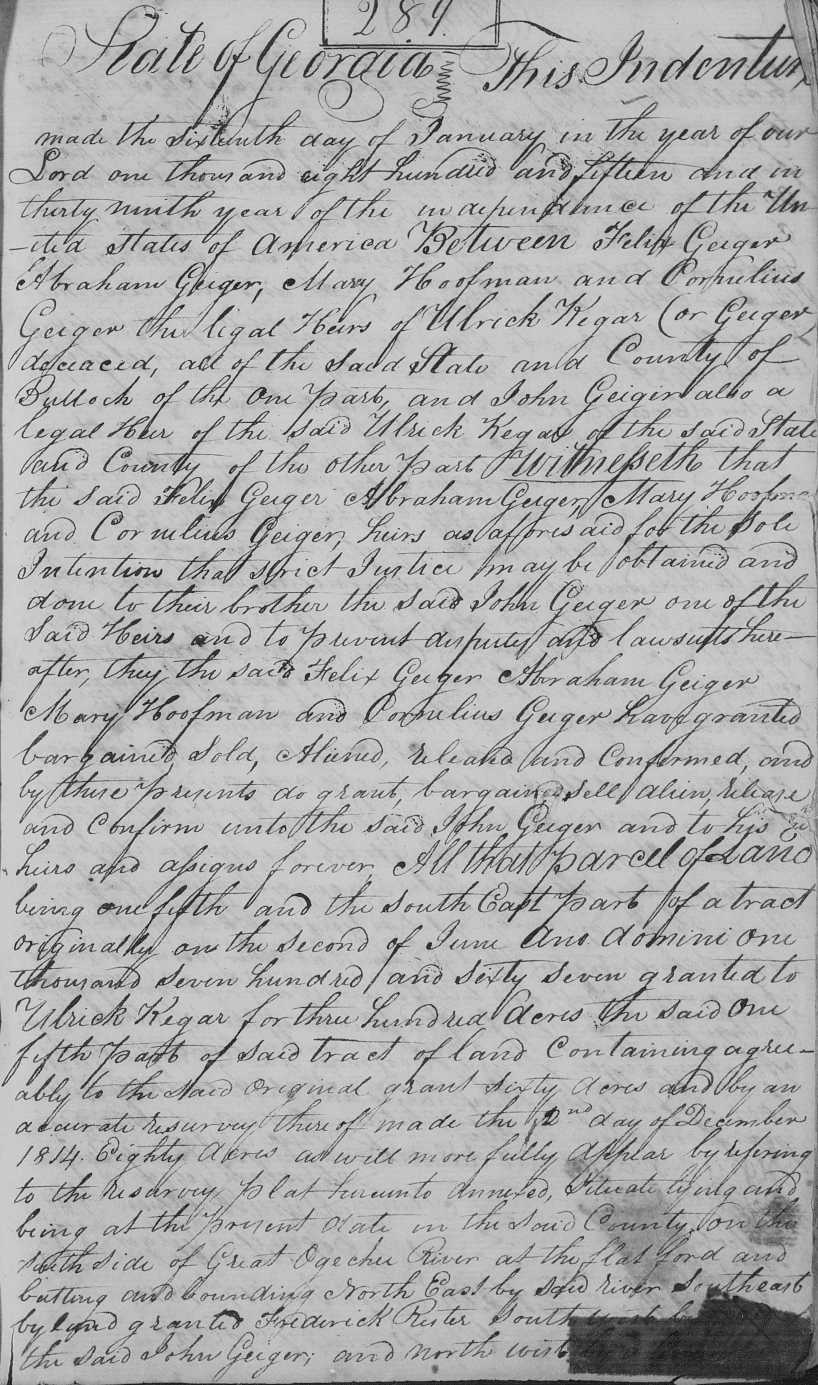 289.
State of Georgia This Indentur
made the sixteenth day of January in the year of our
Lord one thousand eight hundred and fifteen and in
thirty ninth year of the independence of the Un-
-ited States of America Between Felix Geiger
Abraham Geiger, Mary Hoofman and Cornelius
Geiger the ligal Heirs of Ulrick Kegar (or Geiger
deceaced, all of the said State and County of
Bulloch of the one part, and John Geiger also a
legal Heir of the said Ulrick Kegar of the said State
and County of the other part Witnesseth that
the said Felix Geiger Abraham Geiger, Mary Hoofma
and Cornelius Geiger, heirs as aforesaid for the Sole
Intention that strict Justice may be obtained and
done to their brother the said John Geiger one of the
Said Heirs and to prevent disputes and lawsuits here-
after, they the said Felix Geiger Abraham Geiger
Mary Hoofman and Cornelius Geiger have granted
bargained, Sold, Aliened, releasd and Confermed, and
by these presents do grant, bargained, sell, alien, release
and Confirm unto the said John Geiger and to his
heirs and assigns forever, All that parcel of Land
being one fifth and the South East part of a tract
originally on the second of June Ano domini one
thousand seven hundred and sixty seven granted to
Ulrick Kegar for three hundred Acres the said One
fifth part of said tract of land Containing agree-
ably to the said original grant sixty Acres and by an
accurate resurvey thereof made the 2nd day of December
1814. Eighty Acres as will more fully Appear by refering
to the resurvey plat hereunto annexed, Situate lying and
being at the present date in the said County, on the
south side of Great Ogechee River at the flat ford and
butting and bounding North East by said river Southeast
by land granted Frederick Rester South west by
the said John Geiger; and north west